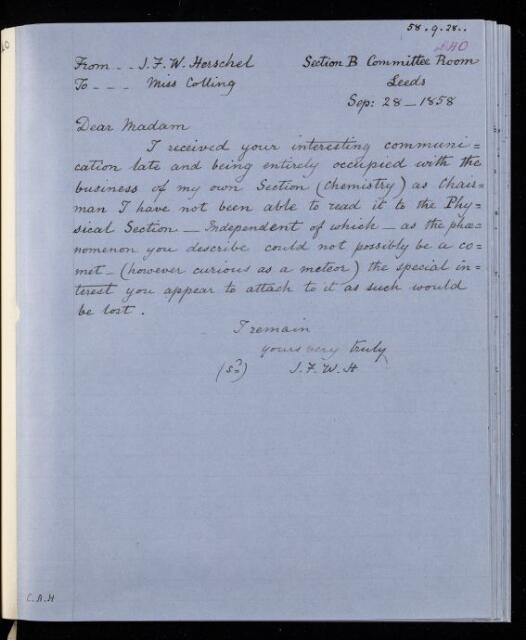 58.9.28..
240
From - - J. F. W. Herschel
Section B Committee Room
To - - - Miss Colling
Leeds
Sep: 28 - 1858
Dear Madam
I received your interesting communi=
cation late and being entirely occupied with the
business of my own Section (Chemistry) as Chair=
man I have not been able to read it to the Phy=
sical Section - Independent of which - as the phæ=
nomenon you describe could not possibly be a co=
met - (however curious as a meteor) the special in=
terest you appear to attach to it as such would
be lost.
I remain
yours very truly
J. F. W. H
C.A.H